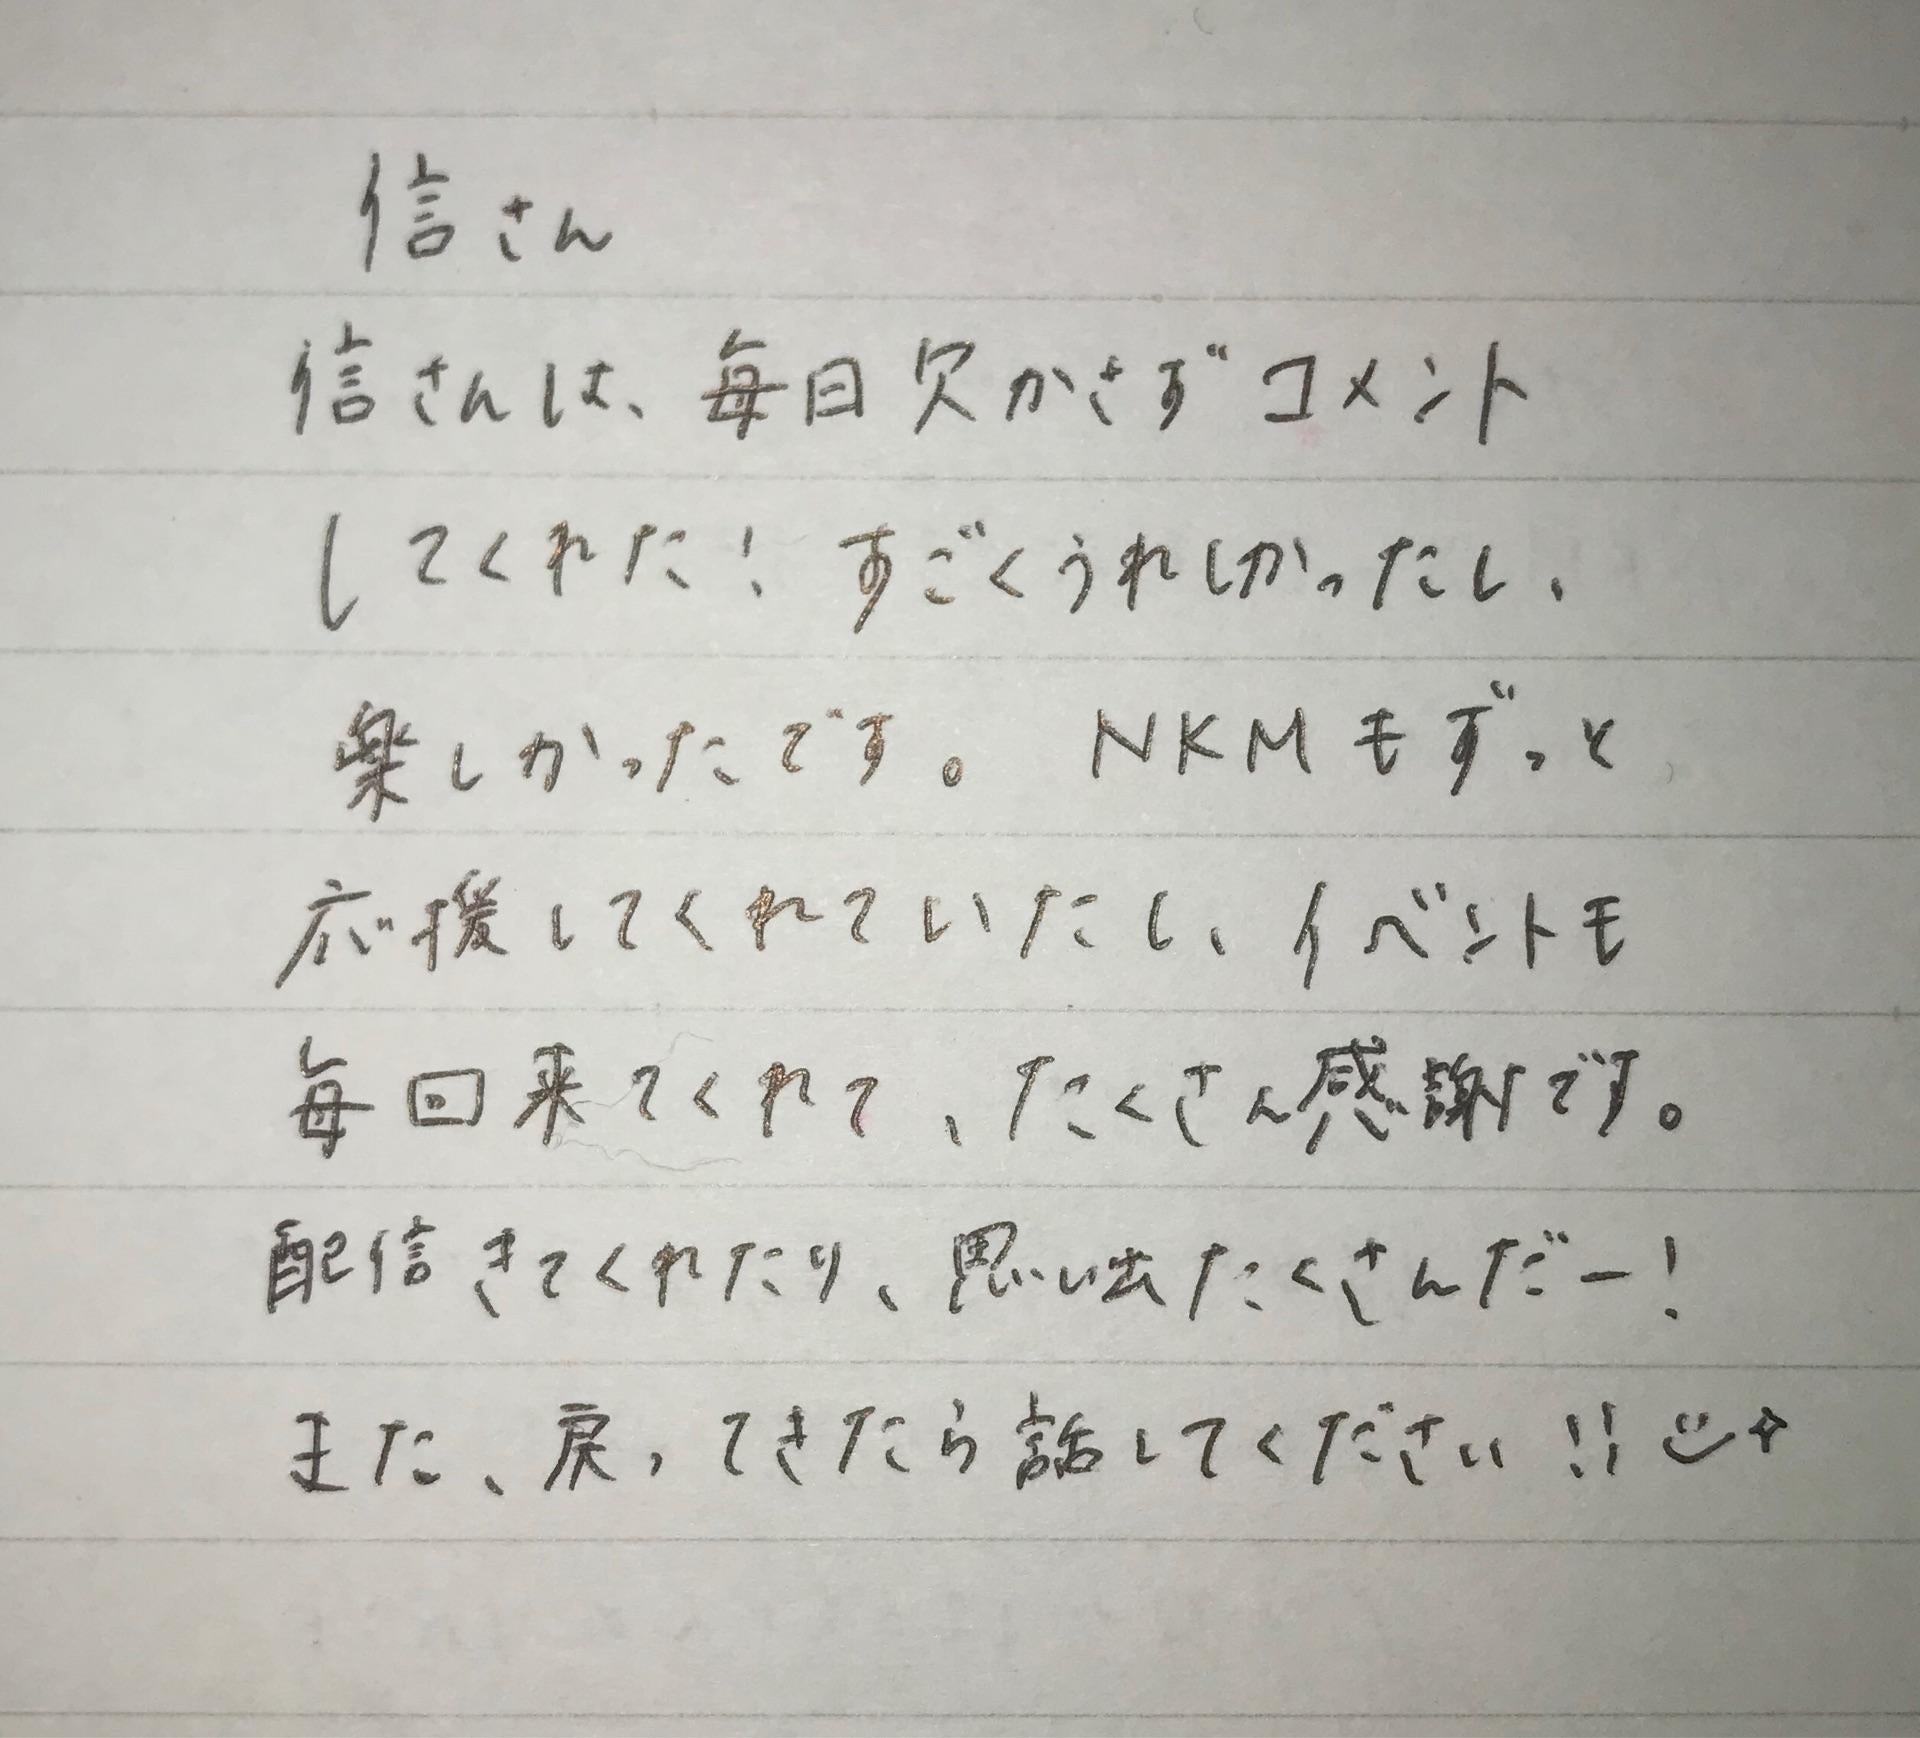 信さん
信さんは、毎日欠かさずコメント
してくれた！すごくうれしかったし、
楽しかったです。NKMもずっと
応援してくれていたし、イベントも
毎回来てくれて、たくさん感謝です。
配信きてくれたり、思い出たくさんだー！
また、戻ってきたら話してください！！